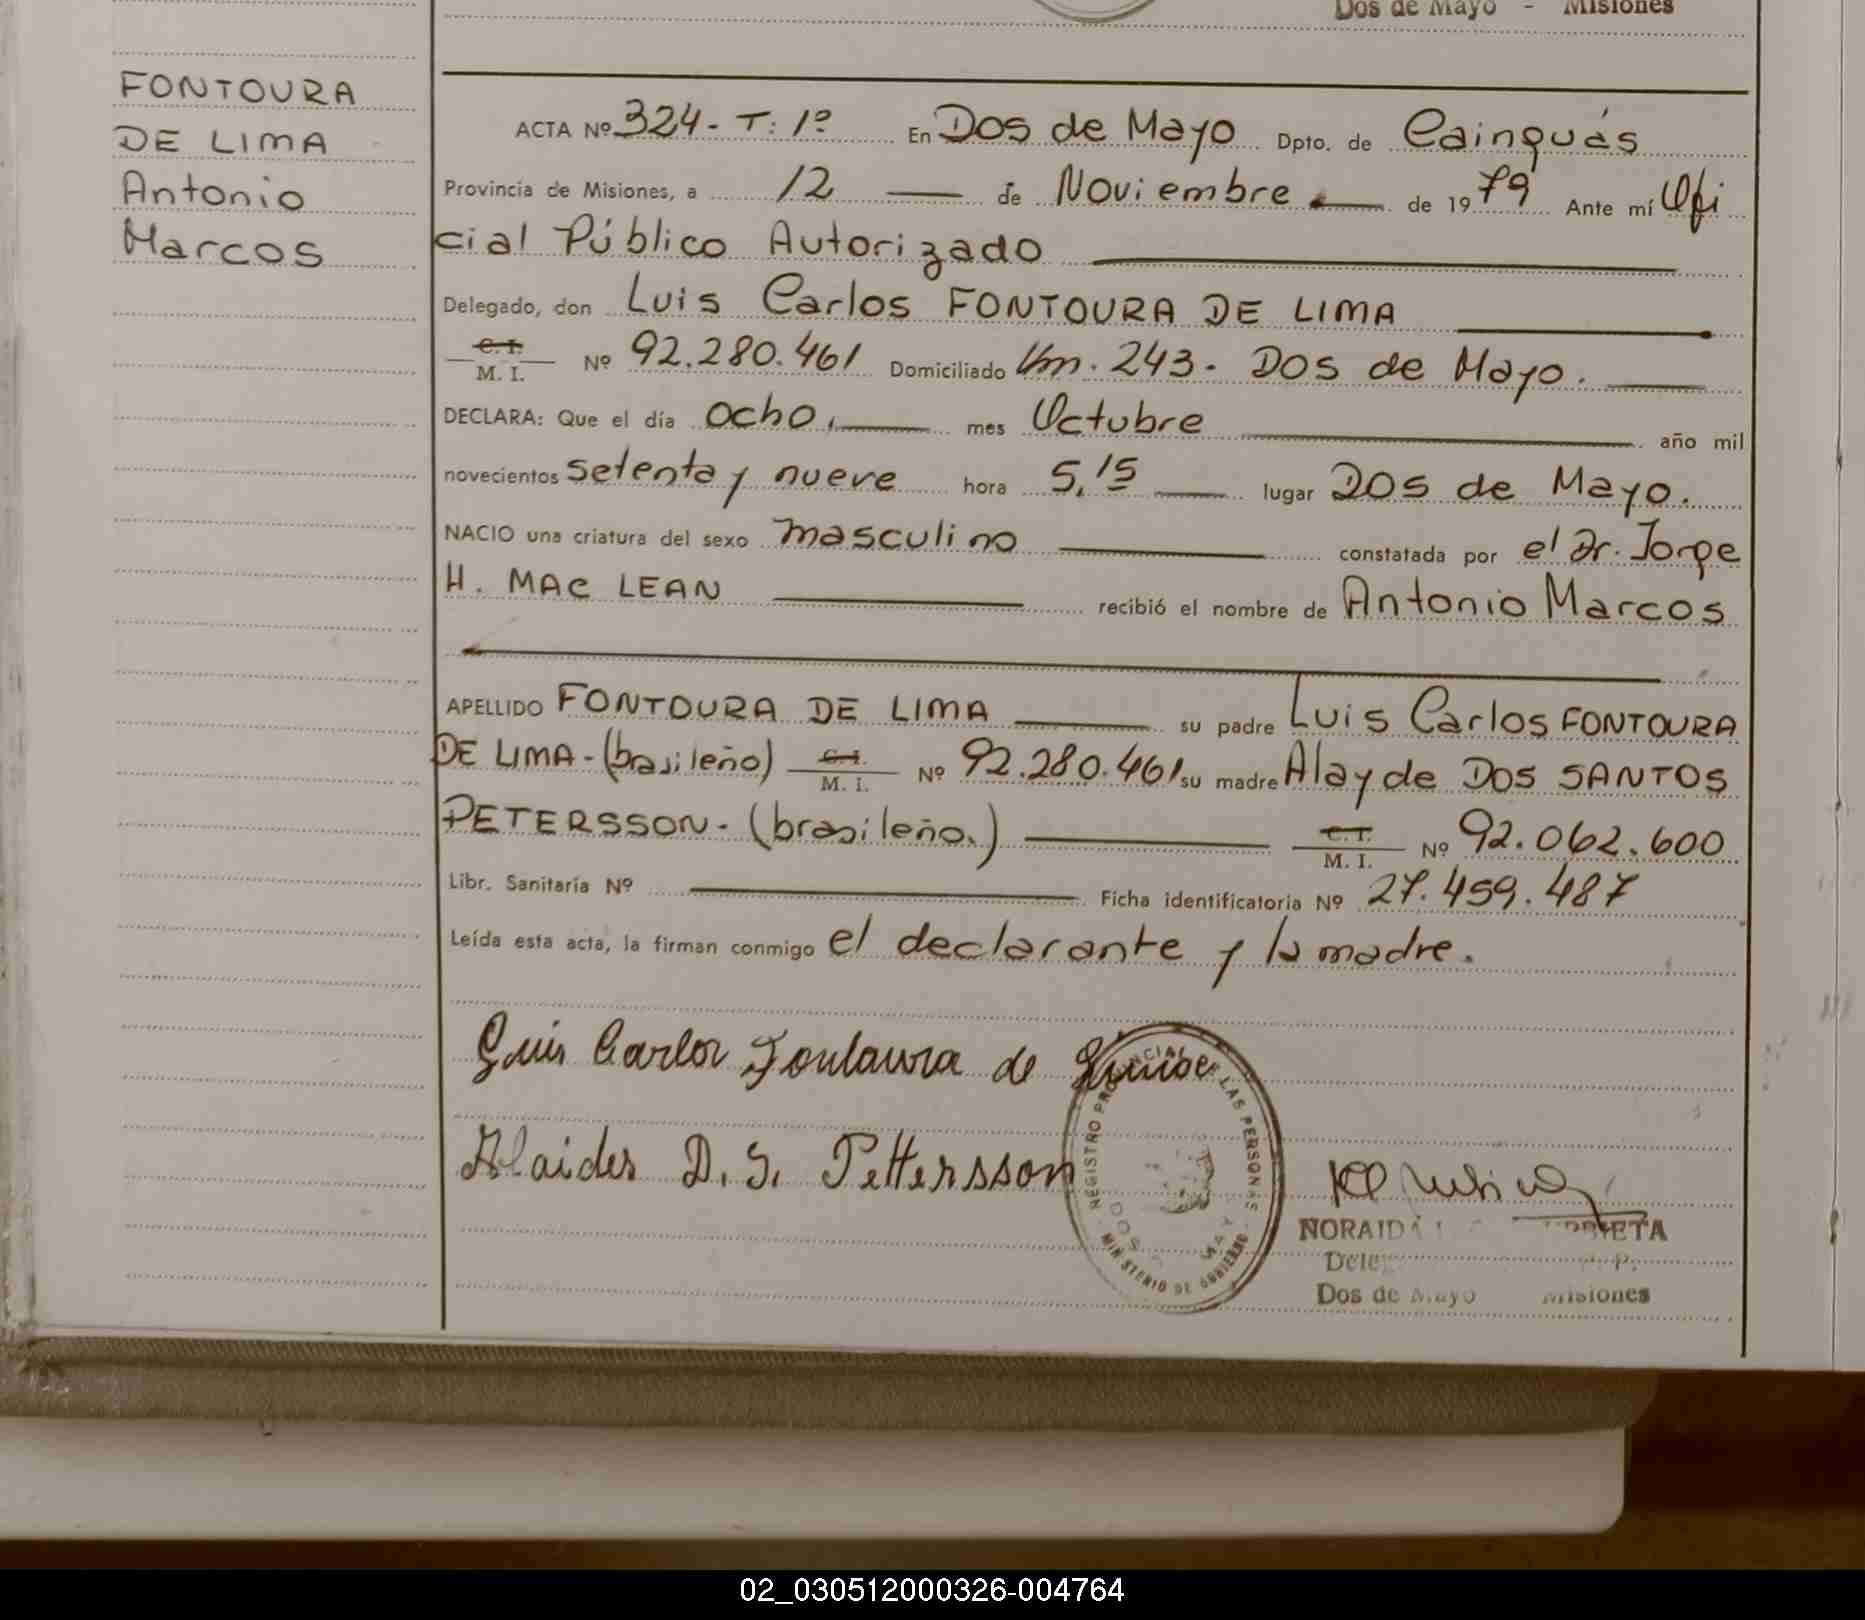 Dos de Mayo - Misiones
FONTOURA
DE LIMA
Antonio
Marcos
ACTA Nº 324- T: 1º En Dos de Mayo Dpto. de Cainguás
Provincia de Misiones, a 12 de Noviembre de 1979 Ante mí Ofi
cial Público Autorizado
Delegado, don Luis Carlos FONTOURA DE LIMA
C. I. M. I. Nº 92.280.461 Domiciliado Km. 243. Dos de Mayo.
DECLARA: Que el día ocho, mes Octubre año mil
novecientos setenta y nueve hora 5,15 lugar Dos de Mayo.
NACIO una criatura del sexo masculino constatada por el Dr. Jorge
H. MAC LEAN recibió el nombre de Antonio Marcos
APELLIDO FONTOURA DE LIMA su padre Luis Carlos FONTOURA
DE LIMA-(brasileño) C.I. M. I. Nº 92.280.461 su madre Alayde DOS SANTOS
PETERSSON- (brasileño.) C.I. M. I. Nº 92.062.600
Libr. Sanitaría Nº Ficha identificatoria Nº 27.459.487
Leída esta acta, la firman conmigo el declarante y la madre.
Luis Carlos Foulaura de Lima
Alaides D. S. Pettersson
REGISTRO PROVINCIAL DE LAS PERSONAS
MINISTERIO DE GOBIERNO
DOS MAY
NORAIDA
Dos de Mayo Misiones
02_030512000326-004764